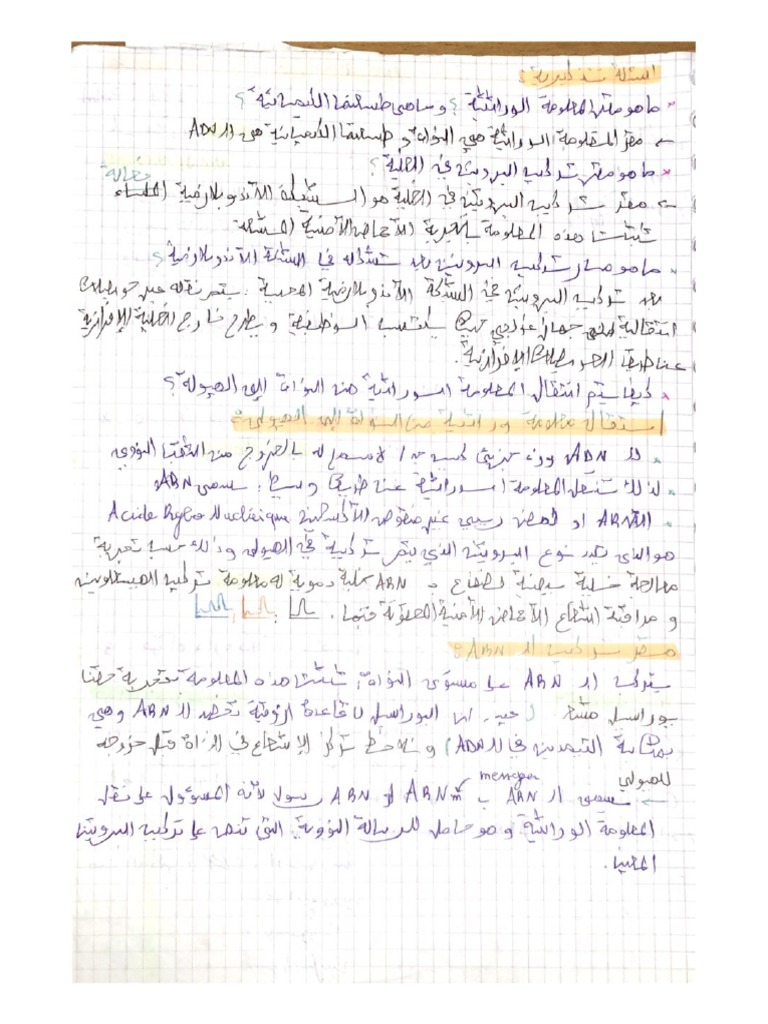 أسئلة تذكيرية:
* ما هو مقر المعلومة الوراثية؟ وما هي طبيعتها الكيميائية؟
← مقر المعلومة الوراثية هي النواة و طبيعتها الكيميائية هي الـ ADN
* ما هو مقر تركيب البروتين في الخلية؟
← مقر تركيب البروتين في الخلية هو الشبكة الأندوبلازمية الفعالة
تثبتت هذه المعلومة بتجربة الأحماض الأمينية المشعة
* ما هو مسار تركيب البروتين بعد تشكله في الشبكة الأندوبلازمية؟
بعد تركيب البروتين في الشبكة الأندوبلازمية المحببة، يتم نقله عبر حويصلات
انتقالية إلى جهاز غولجي حيث يكتسب الوظيفية و يطرح خارج الخلية الإفرازية
عن طريق الحويصلات الإفرازية.
* كيف يتم انتقال المعلومة الوراثية من النواة إلى الهيولة؟
انتقال معلومة وراثية من النواة إلى الهيولى:
* للـ ADN وزن جزيئي كبير جدا لا يسمح له بالخروج من الثقب النووي
* لذلك تنتقل المعلومة الوراثية عن طريق وسيط، يسمى ARN
* الـ ARN أو حمض ريبي منقوص الأكسجين Acide Rybo Nucléique
هو الذي يحدد نوع البروتين الذي يتم تركيبه في الهيولى وذلك حسب تجربة
معالجة خلية بيضية لضفدع بـ ARN خلية دموية له معلومة تركيب الهيموغلوبين
و مراقبة إشعاع الأحماض الأمينية المحقونة فيها.
مقر تركيب الـ ARN:
يتركب الـ ARN على مستوى النواة، تثبتت هذه المعلومة بتجربة حقن
يوراسيل مشع (حيث أن اليوراسيل قاعدة آزوتية تخص الـ ARN وهي
بمثابة التيمين في الـ ADN) و نلاحظ تركز الإشعاع في النواة قبل خروجه
للهيولى
messager
← يسمى الـ ARN بـ ARNm أو ARN رسول لأنه المسؤول على نقل
المعلومة الوراثية و هو حامل للرسالة النووية التي تنص على تركيب البروتين
المعني.